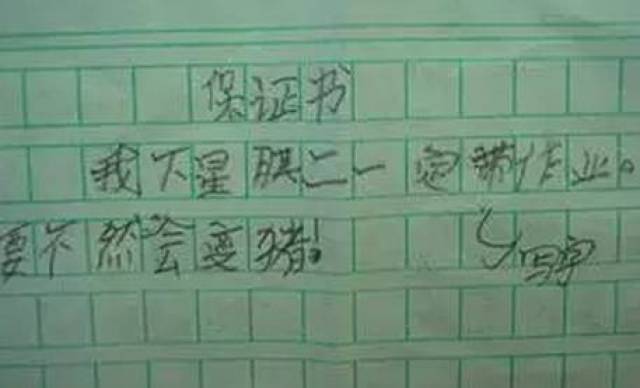 保证书
我下星期二一定带作业。
要不然会变猪!
写字